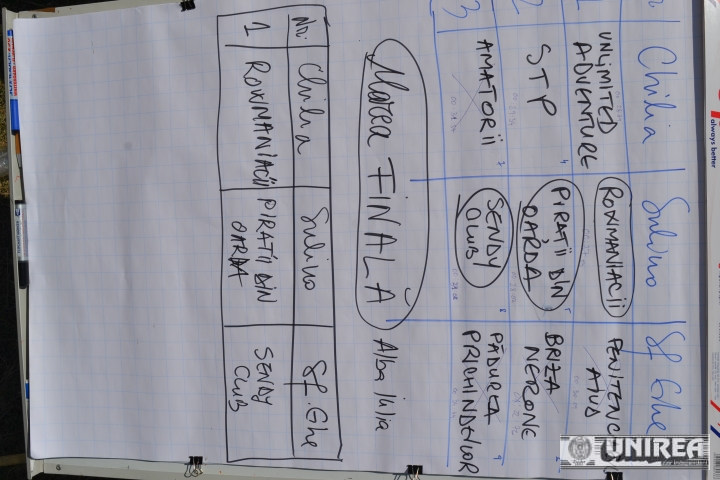 Chilia Sulina Sf. Ghe
1 UNLIMITED ADVENTURE ROXMANIACII PENITENC AIUD
2 STP PIRAȚII DIN OARDA BRIZA NERONE
3 AMATORII SENDY CLUB PĂDUREA PRICHINDELOR
Marea FINALĂ Alba Iulia
Nr. Chilia Sulina Sf. Ghe
1 ROXMANIACII PIRAȚII DIN OARDA SENDY CLUB
always better
UNIREA